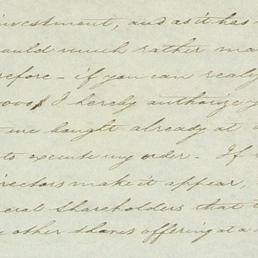 investment, and as it has
would much rather ma
refore - if you can realy
I hereby authorize y
me bought already at
to execute my order. If
irectors make it appear,
eral shareholders that t
other shares offering at a